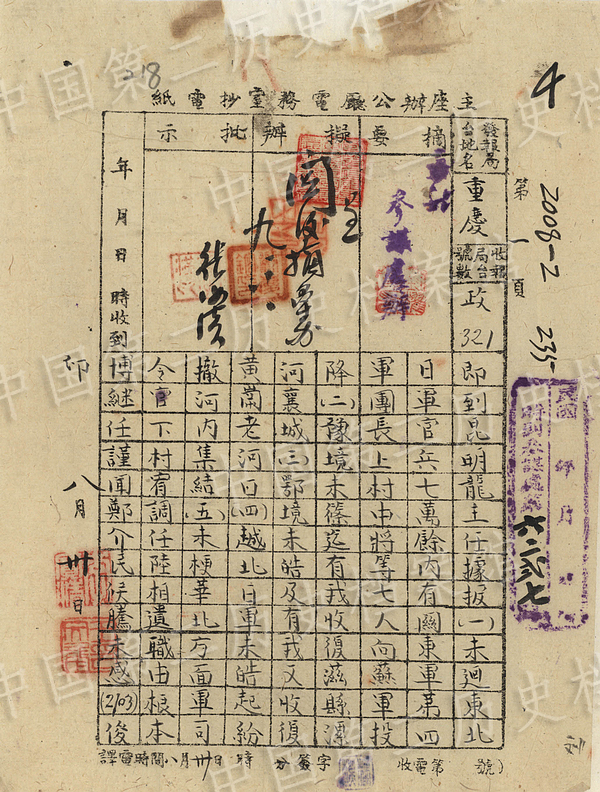 218
4
主座辦公廳電務室抄電紙
第一頁
2008-2 235
發報局台地名
重慶
收報局台號數
政
321
摘要
擬辦
批示
參謀處辦
呈
閱
年月日時收到
即到昆明龍主任據报(一)未迴東北
日軍官兵七萬餘內有關東軍第四
軍團長上村中將等七人向蘇軍投
降(二)豫境未篠迄有我收復滋縣漂
河襄城(三)鄂境未皓及有我又收復
黃岡老河口(四)越北日軍未皓起紛
撤河內集結(五)未梗華北方面軍司
令官下村宥調任陸相遺職由根本
博繼任謹聞鄭介民侯騰未感(2103)俊
印
八月卅日
民國 年 月 日
六二弍七
譯電時間八月卅日 時 分簽字 收電第 號)
中国第二历史档案馆